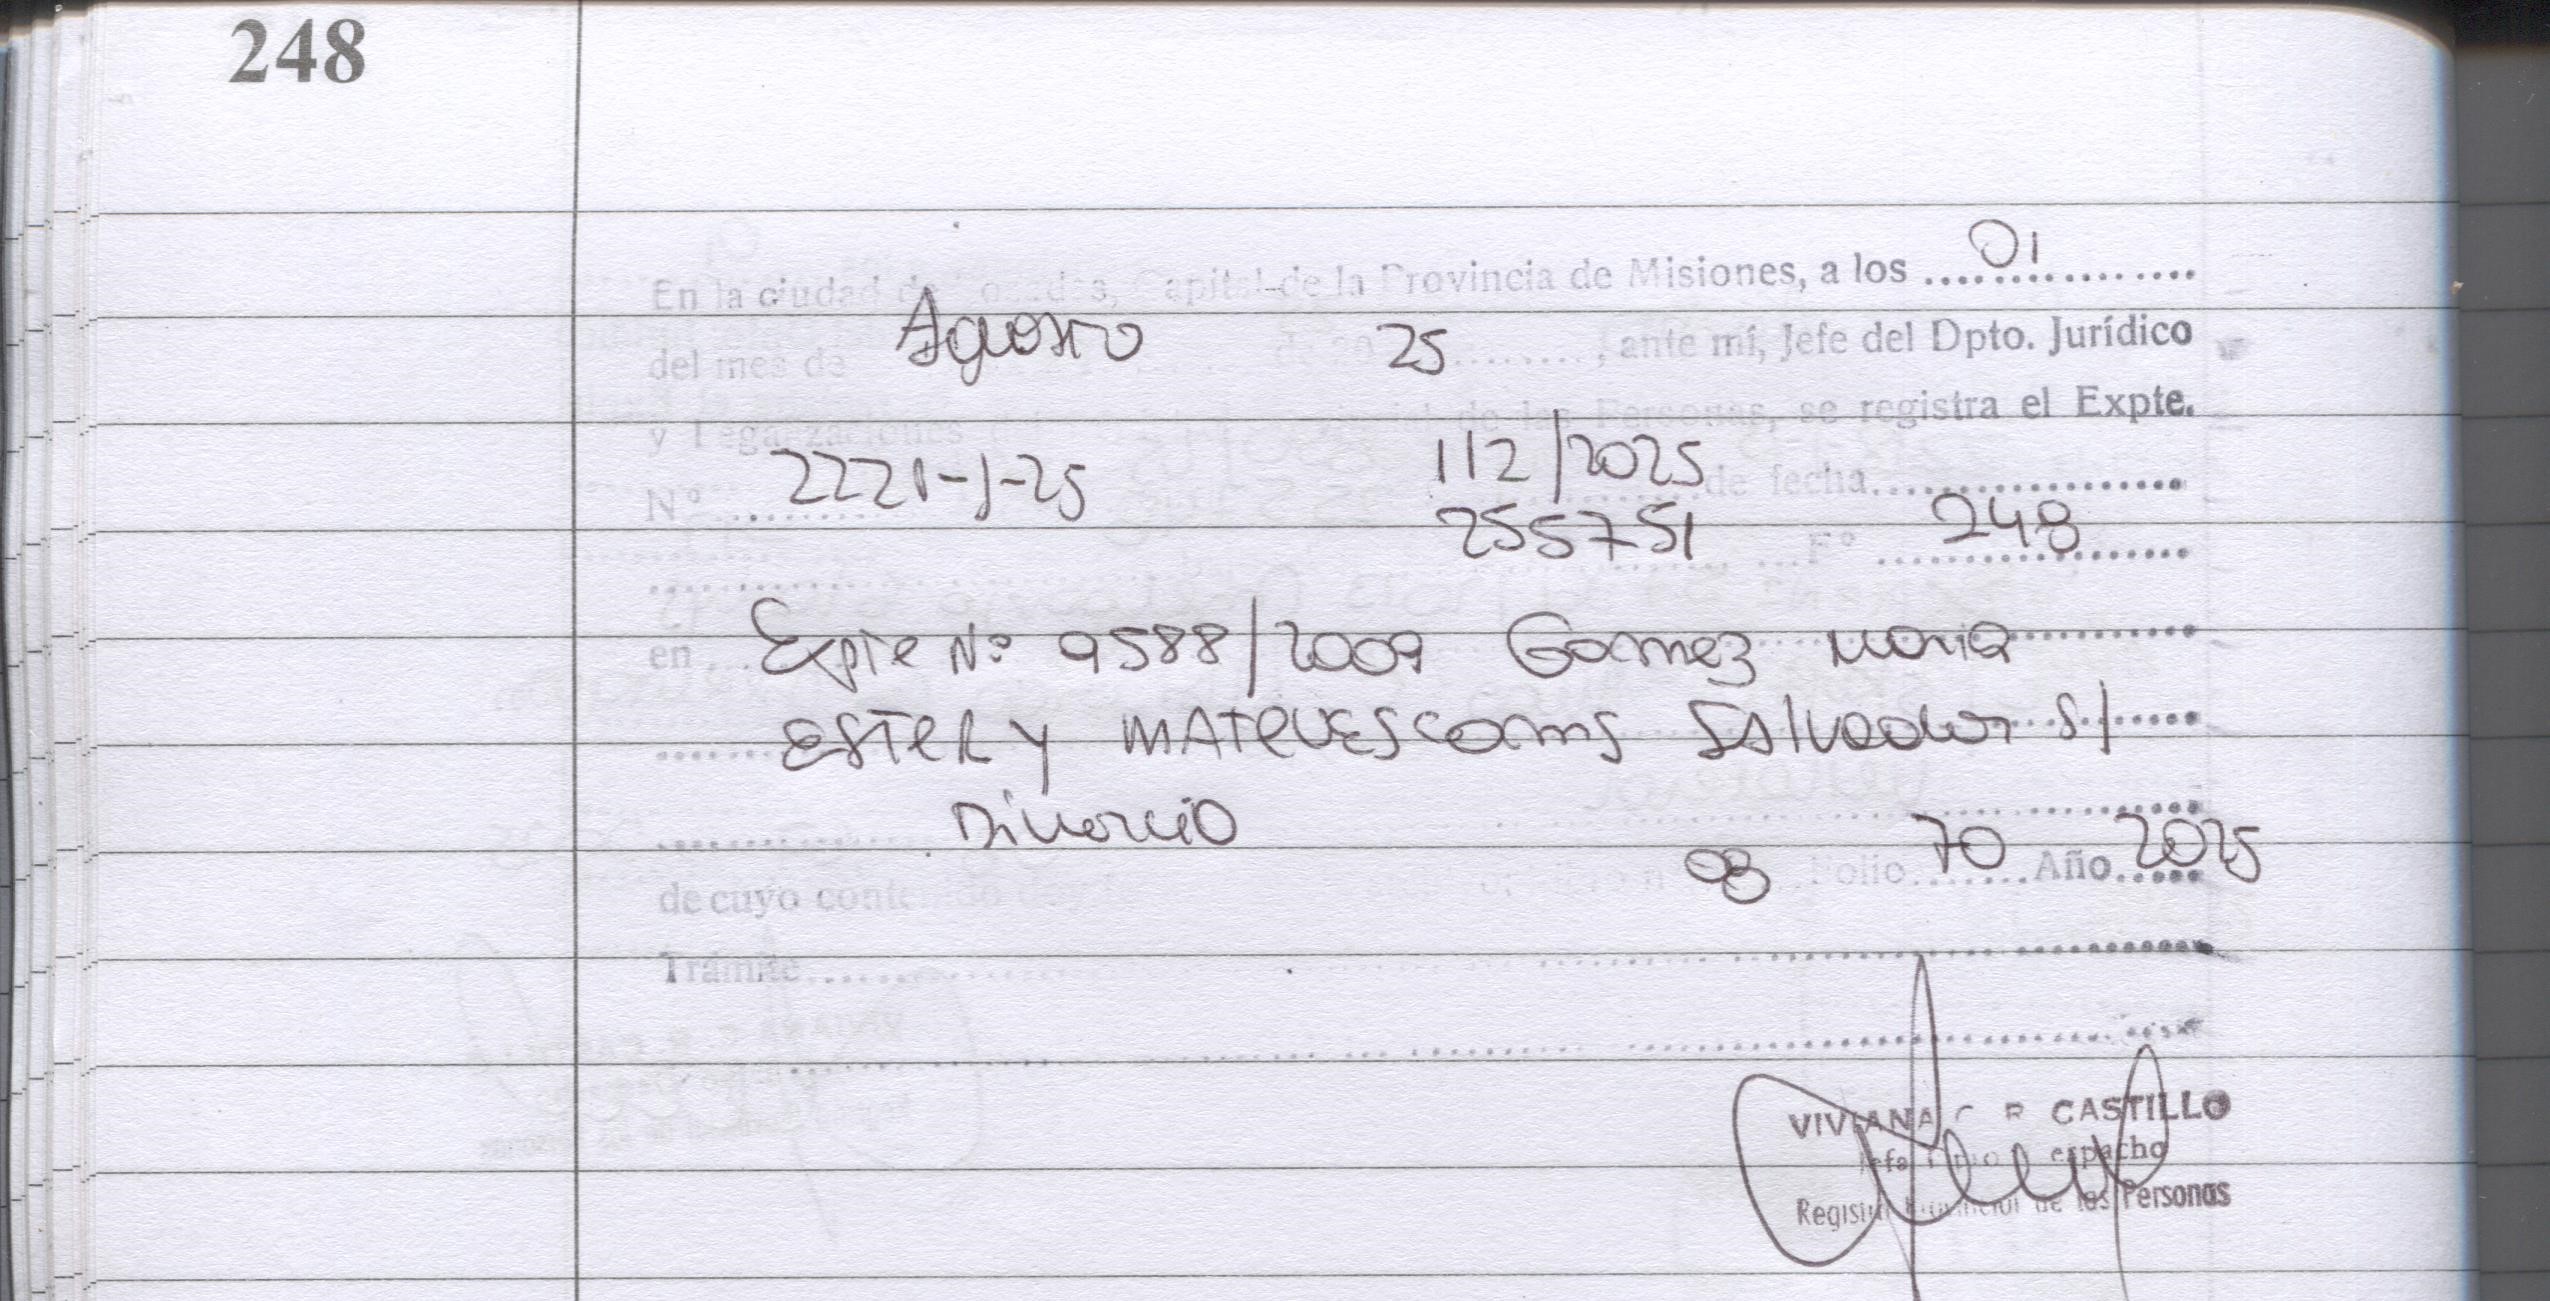 248
En la ciudad de Posadas, Capital de la Provincia de Misiones, a los 01
del mes de Agosto de 20 25, ante mí, Jefe del Dpto. Jurídico
y Legalizaciones de las Personas, se registra el Expte.
Nº 2221-J-25 112/2025 de fecha
255751 Fº 248
en Expte Nº 9588/2009 Gomez Maria
ESTER y Salvador S/
Divorcio
de cuyo contenido 08 Folio 70 Año 2025
Trámite
VIVIANA CASTILLO
Jefa Despacho
Registro Provincial de las Personas